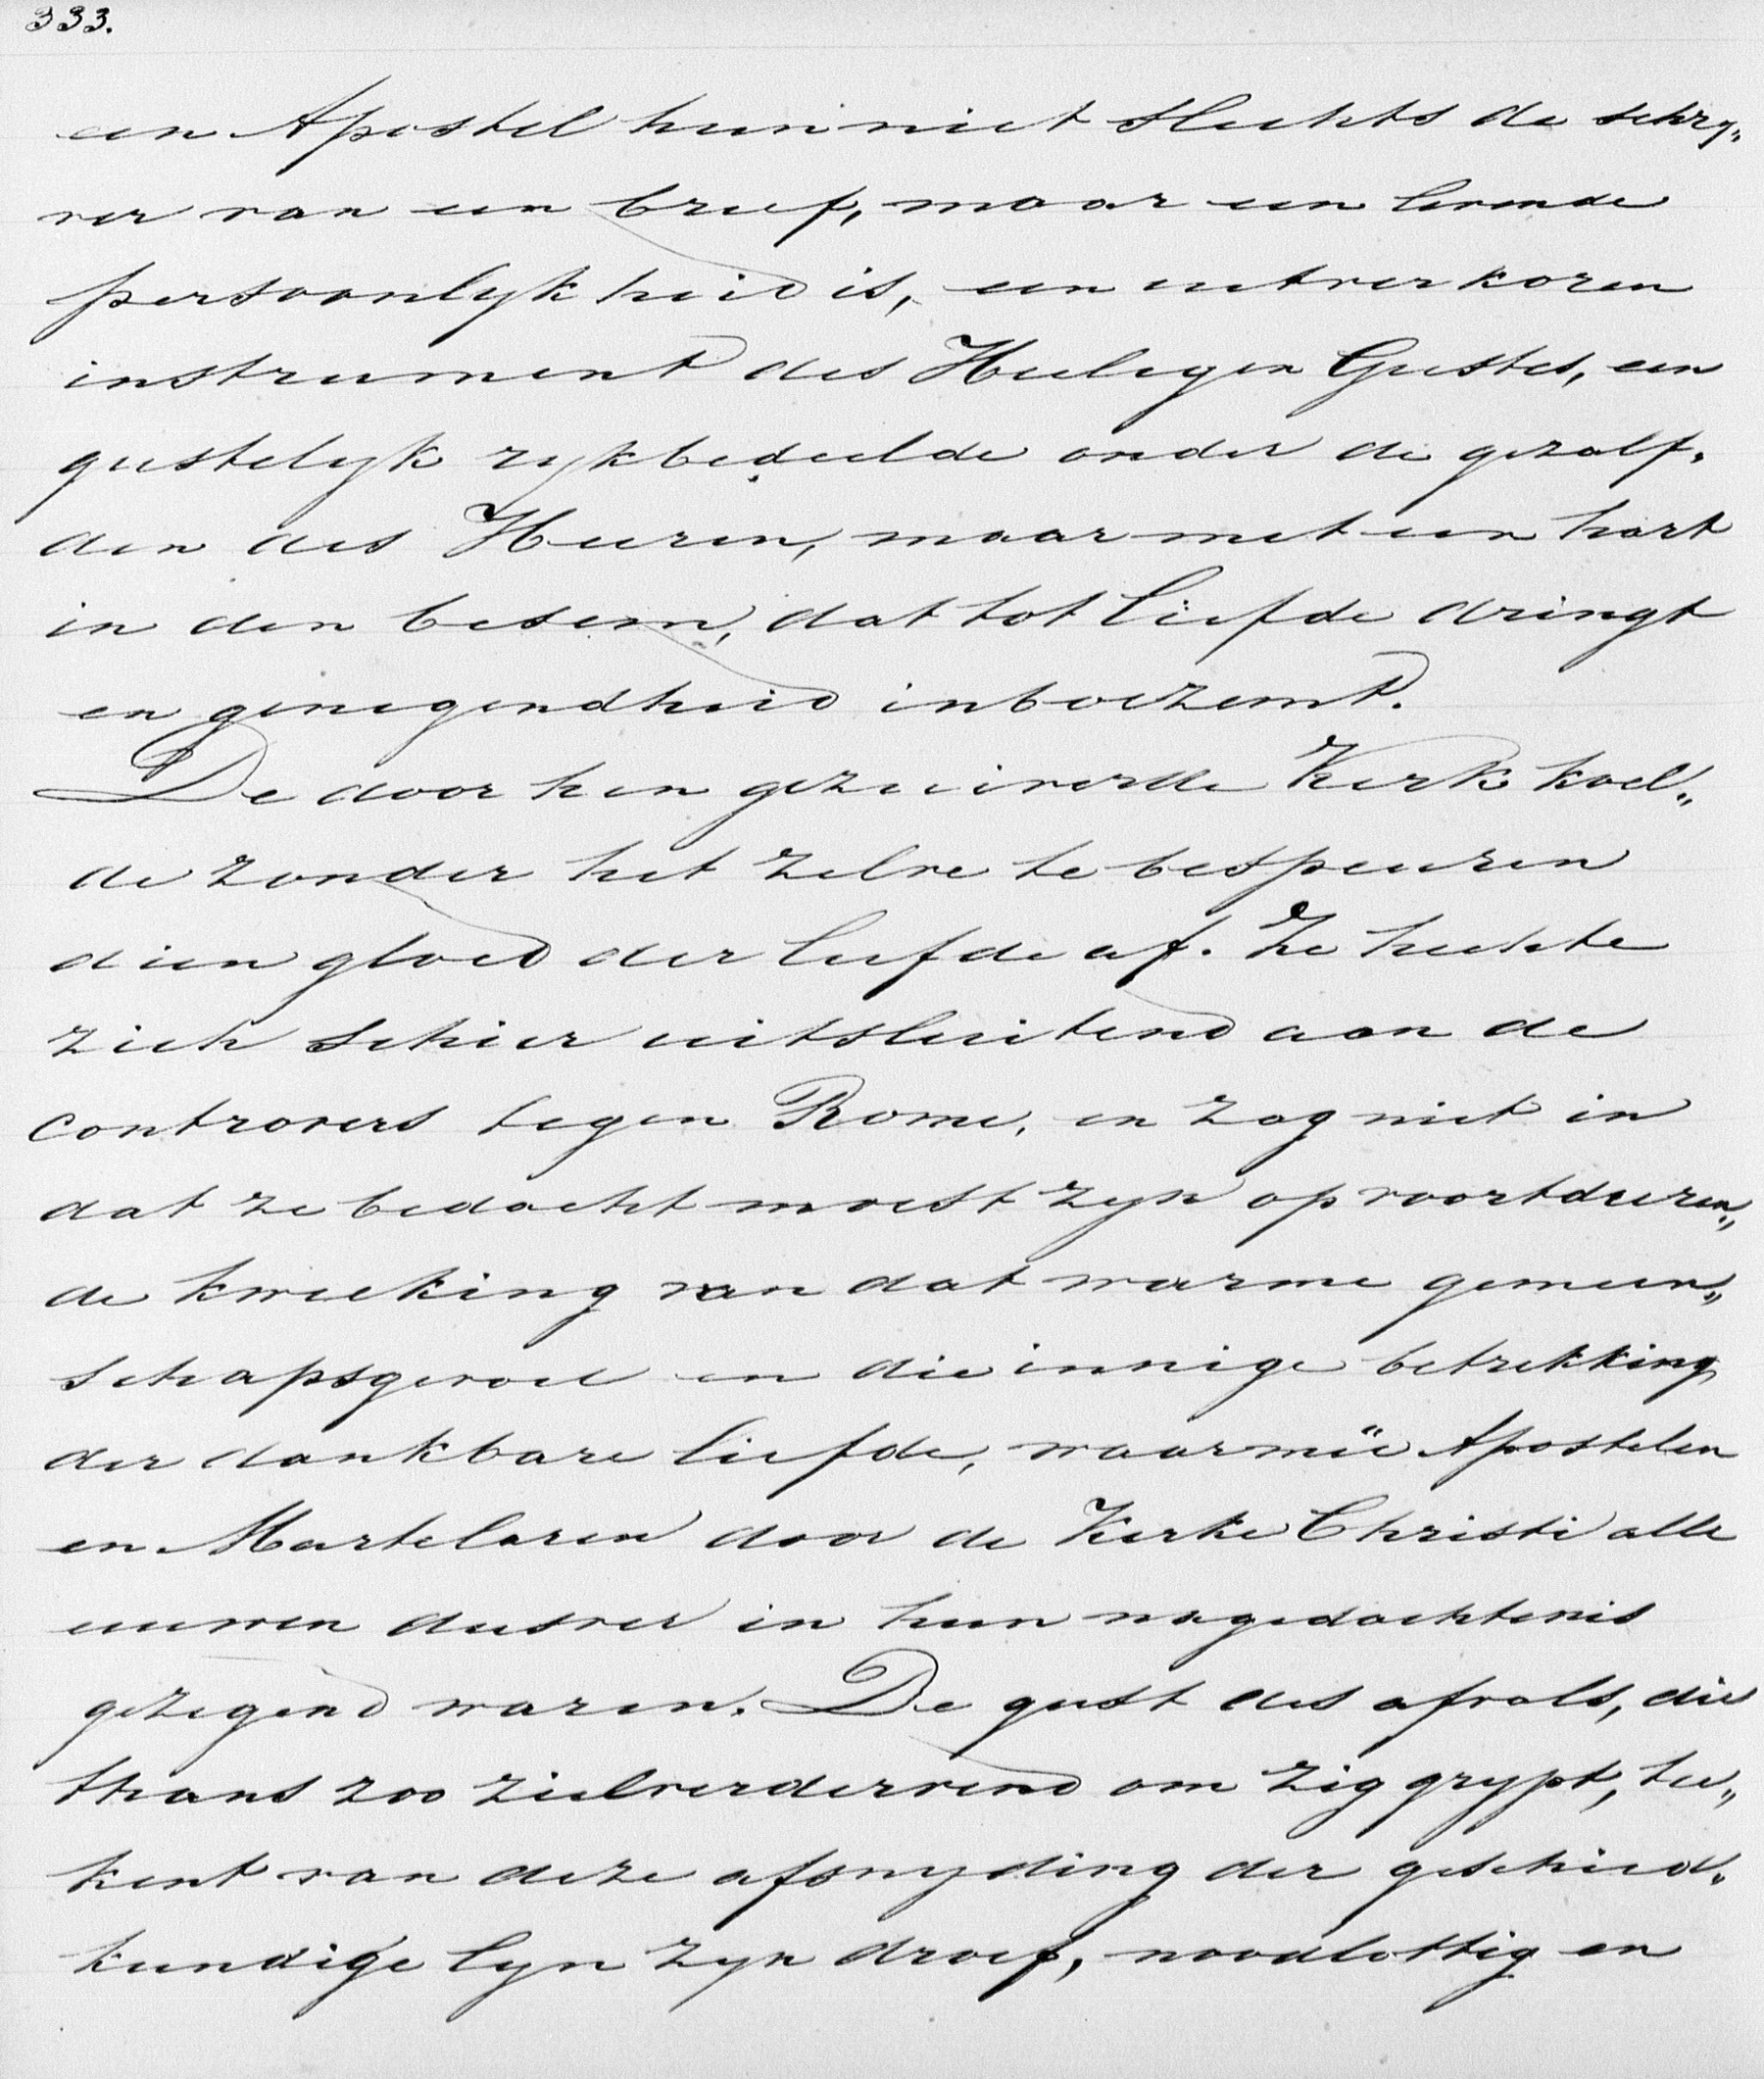 333.
een Apostel hun niet slechts de schry„
ver van een brief, maar een levende
persoonlykheid is, een uitverkoren
instrument des Heiligen Geestes, een
geestelyk rykbedeelde onder de gezalf„
den des Heeren, maar met een hart
in den boesem, dat tot liefde dringt
en genegendheid inboezemt.
De door hen gezuiverde Kerk koel„
de zonder het zelve te bespeuren
dien gloed der liefde af. Ze hechte
zich schier uitsluitend aan de
controvers tegen Rome, en zag niet in
dat ze bedacht moest zyn op voortduren„
de kweeking van dat warme gemeen„
schapsgevoel en die innige betrekking
der dankbare liefde, waarmeë Apostelen
en Martelaren door de Kerke Christi alle
eeuwen dusver in hun nagedachtenis
gezegend waren. De geest des afvals, die
thans zoo zielverdervend om zig grypt, tee„
kent van deze afsnyding der geschied„
kundige lyn zyn droef, noodlottig en